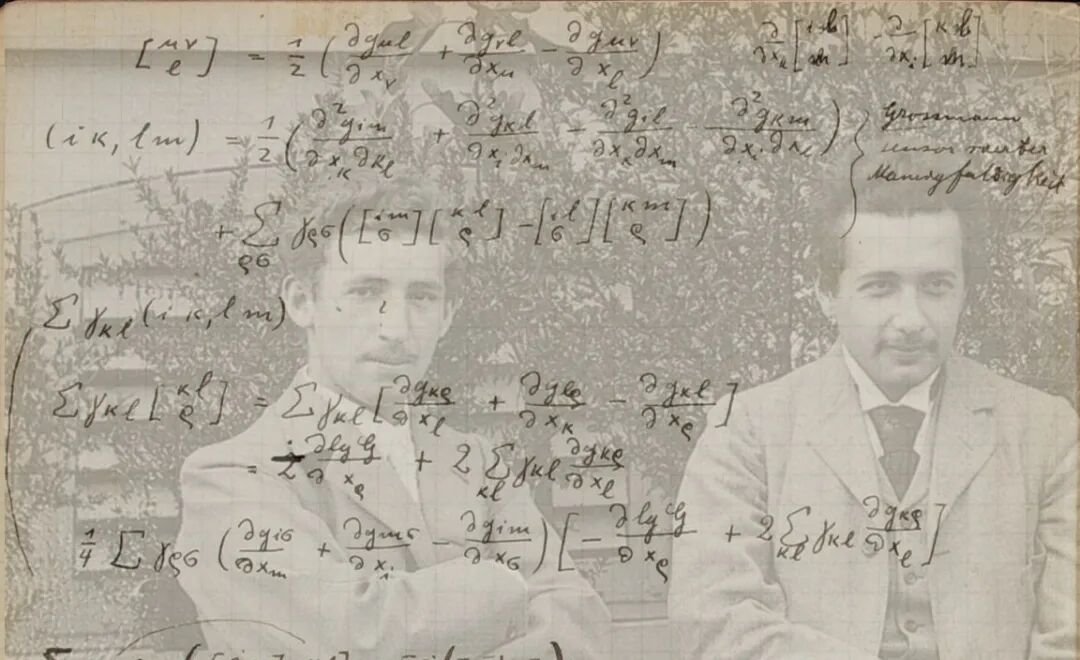 [μν l] = 1/2 (∂gμl/∂xν + ∂gνl/∂xμ − ∂gμν/∂xl) ∂/∂xκ [i l m] − ∂/∂xi [κ l m]
(iκ, lm) = 1/2 (∂²gim/∂xκ∂xl + ∂²gκl/∂xi∂xm − ∂²gil/∂xκ∂xm − ∂²gκm/∂xi∂xl) }
Grossmann
Tensor vierter
Manigfaltigkeit
+ Σρσ γρσ ([im σ][κl ρ] − [il σ][κm ρ])
Σ γκl (iκ, lm)
Σ γκl [κl ρ] = Σ γκl [∂gκρ/∂xl + ∂glρ/∂xκ − ∂gκl/∂xρ]
= − ∂lgG/∂xρ + 2 Σκl γκl ∂gκρ/∂xl
1/4 Σ γρσ (∂giσ/∂xm + ∂gmσ/∂xi − ∂gim/∂xσ) [− ∂lgG/∂xρ + 2 Σκl γκl ∂gκρ/∂xl]